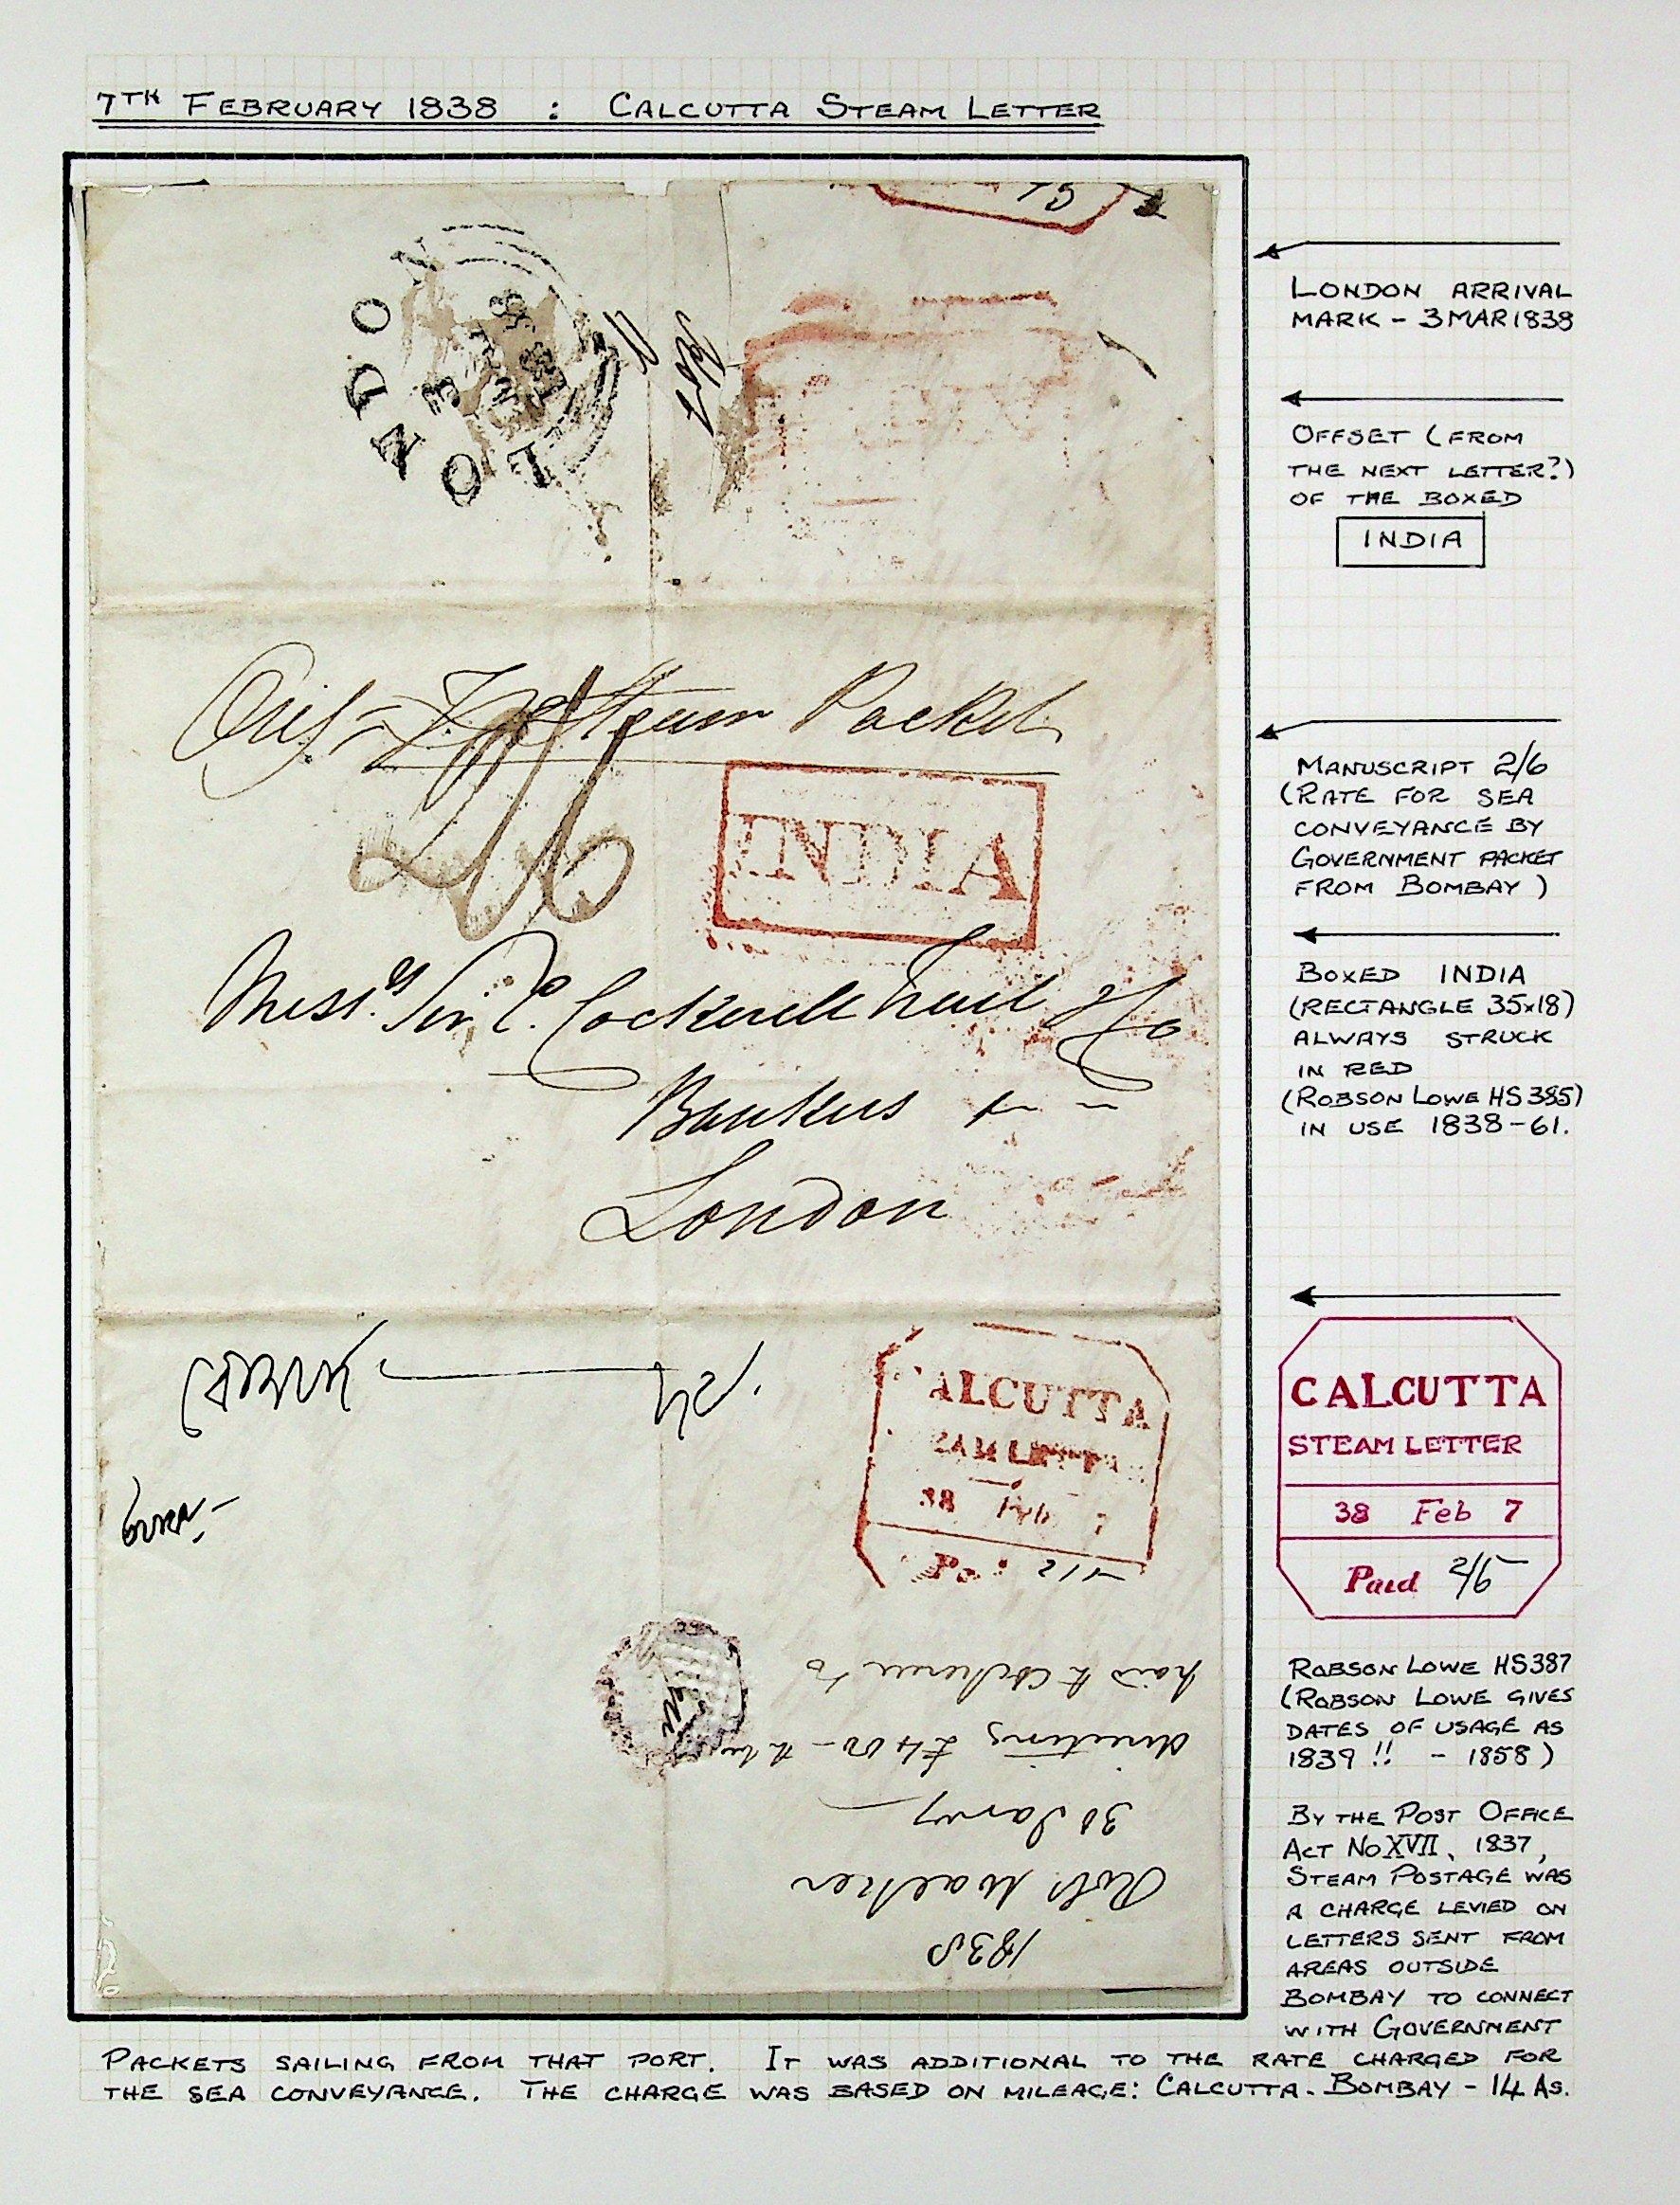 7TH FEBRUARY 1838 : CALCUTTA STEAM LETTER
LONDON
Steam Packet
2/6
INDIA
Mess.rs Sir C. Cockerell Co
Bankers
London
CALCUTTA
38 Feb 7
Pa
paid to Cockerell
directing £400
30 Jany
Robt Walker
1838
LONDON ARRIVAL
MARK - 3 MAR 1838
OFFSET (FROM
THE NEXT LETTER?)
OF THE BOXED
INDIA
MANUSCRIPT 2/6
(RATE FOR SEA
CONVEYANCE BY
GOVERNMENT PACKET
FROM BOMBAY)
BOXED INDIA
(RECTANGLE 35x18)
ALWAYS STRUCK
IN RED
(ROBSON LOWE HS 385)
IN USE 1838-61.
CALCUTTA
STEAM LETTER
38 Feb 7
Paid 2/5
ROBSON LOWE HS387
(ROBSON LOWE GIVES
DATES OF USAGE AS
1839 !! - 1858)
BY THE POST OFFICE
ACT NO XVII, 1837,
STEAM POSTAGE WAS
A CHARGE LEVIED ON
LETTERS SENT FROM
AREAS OUTSIDE
BOMBAY TO CONNECT
WITH GOVERNMENT
PACKETS SAILING FROM THAT PORT. IT WAS ADDITIONAL TO THE RATE CHARGED FOR
THE SEA CONVEYANCE. THE CHARGE WAS BASED ON MILEAGE: CALCUTTA-BOMBAY - 14 AS.